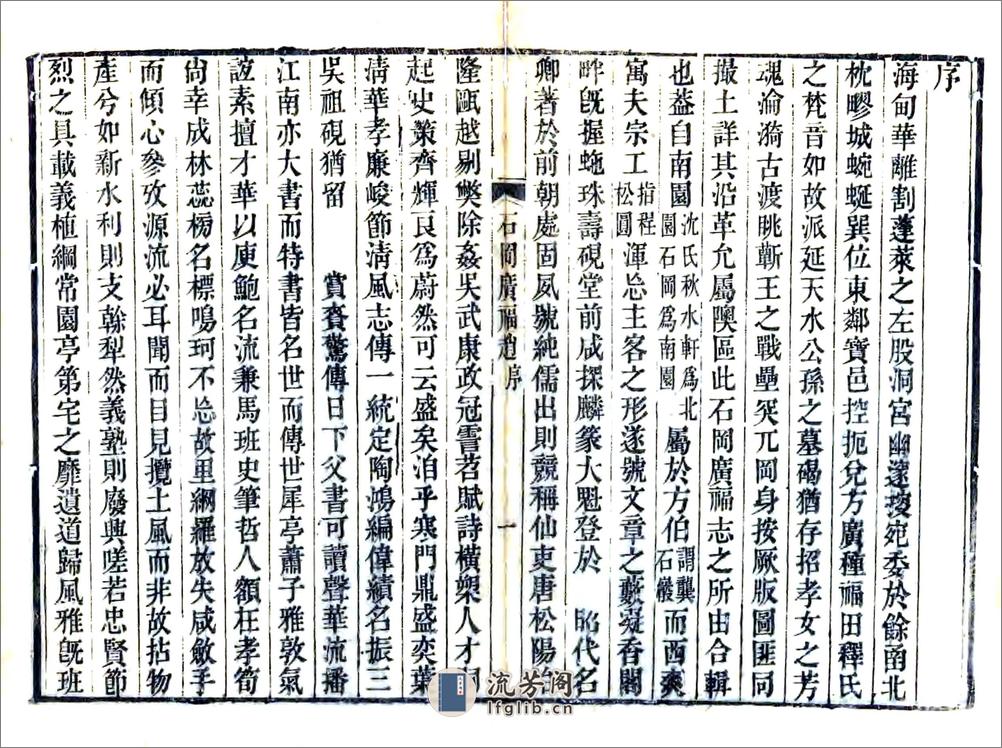 序
海甸華離割蓬萊之左股洞宮幽邃接宛委於餘甬北
枕疁城蜿蜒巽位東鄰寶邑控扼兌方廣種福田釋氏
之梵音如故派延天水公孫之墓碣猶存招孝女之芳
魂淪漪古渡眺蘄王之戰壘突兀岡身按厥版圖匪同
撮土詳其沿革允屬隩區此石岡廣福志之所由合輯
也葢自南園沈氏秋水軒為北園石岡為南園屬於方伯謂龔石巖而西爽
寓夫宗工指程松圓渾忘主客之形遂號文章之藪凝香閣
畔旣握蛐珠壽硯堂前咸探麟篆大魁登於 昭代名
卿著於前朝處固夙號純儒出則競稱仙吏唐松陽治
隆甌越剔獘除姦吳武康政冠霅苕賦詩橫槊人才
起史策齊輝良爲蔚然可云盛矣洎乎寒門鼎盛奕葉
淸華孝廉峻節淸風志傳一統定陶鴻編偉績名振三
吳祖硯猶留 賞賚驚傳日下父書可讀聲華流播
江南亦大書而特書皆名世而傳世犀亭蕭子雅敦氣
誼素擅才華以庾鮑名流兼馬班史筆哲人額在孝筍
尙幸成林蕊榜名標鳴珂不忘故里網羅放失咸斂手
而傾心參攷源流必耳聞而目見攬土風而非故拈物
產兮如新水利則支榦犁然義塾則廢興嗟若忠賢節
烈之具載義植綱常園亭第宅之靡遺道歸風雅旣班
石岡廣福趙序
一
流芳阁
lfglib.cn